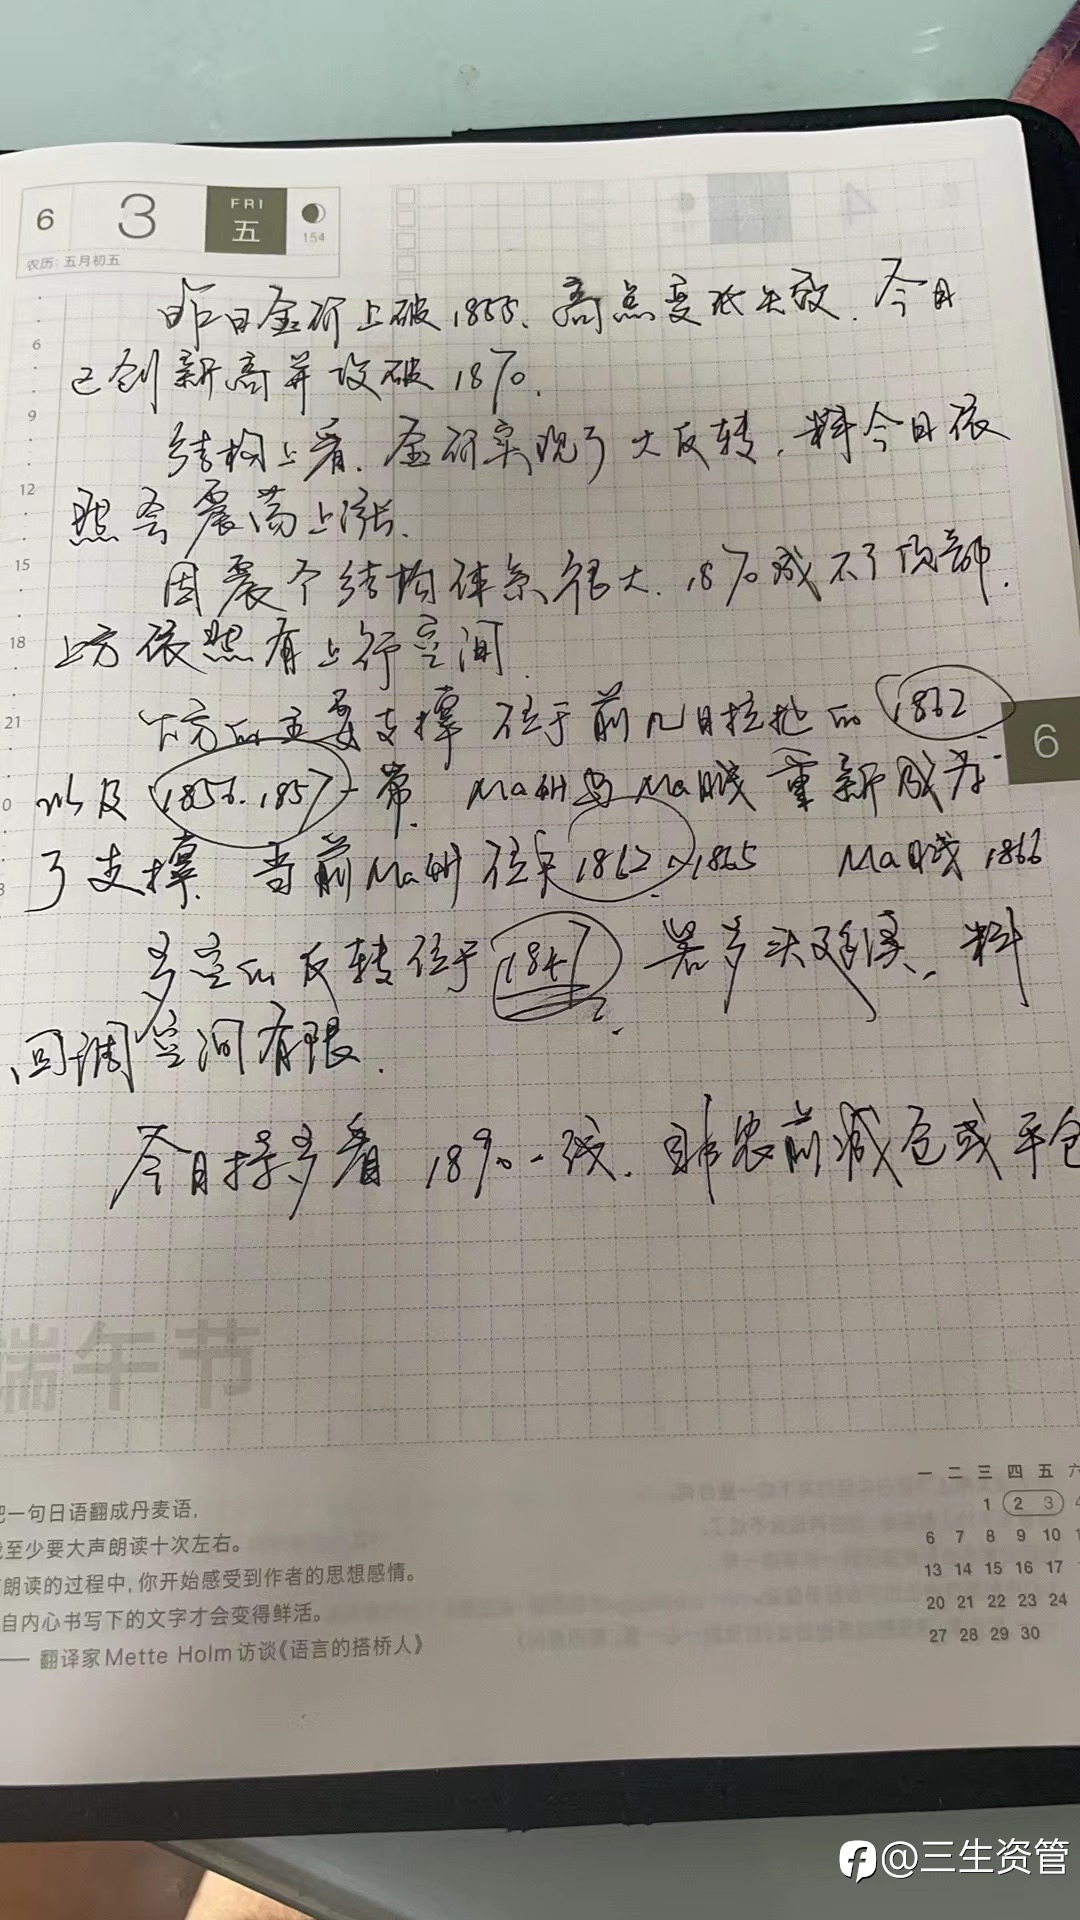 6 3 FRI 五 154
农历：五月初五
昨日金价上破1855、高点变低失效、今日
6
已创新高并攻破1870、
9
结构上看、金价实现了大反转、料今日依
12
然会震荡上涨、
15
因震个结构体系很大、1870成不了顶部、
18
上方依然有上行空间
21
下方的主要支撑位于前几日拉抬的1862
6
以及1856.1857一带、Ma4H与Ma日线重新成为
了支撑、当前Ma4H位于1862、1865 Ma日线1866
多空的反转位于1847 若多头延续、料
回调空间有限、
今日持多看1890一线、非农前减仓或平仓
端午节
把一句日语翻成丹麦语，
至少要大声朗读十次左右。
朗读的过程中，你开始感受到作者的思想感情。
自内心书写下的文字才会变得鲜活。
—— 翻译家Mette Holm访谈《语言的搭桥人》
一 二 三 四 五 六
1 2 3 4
6 7 8 9 10
13 14 15 16 17
20 21 22 23 24
27 28 29 30
@三生资管